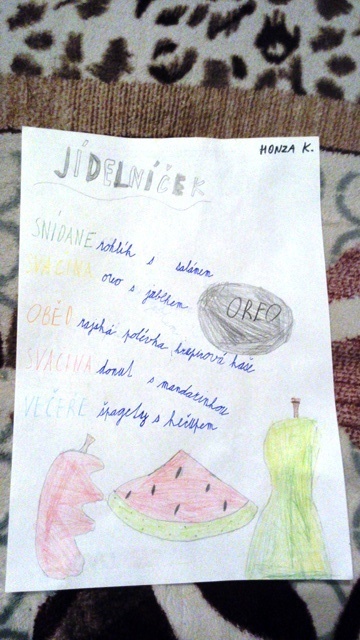 HONZA K.
JÍDELNÍČEK
SNÍDANE rohlík s salámem
SVAČINA oreo s jablkem
OREO
OBĚD rajská polévka krupicová kaše
SVAČINA donut s mandarinkou
VEČEŘE špagety s kečupem